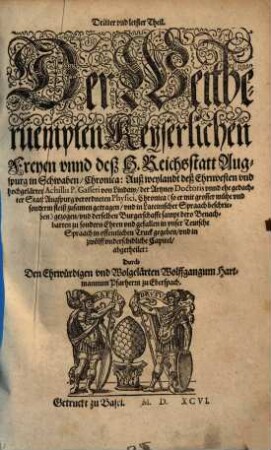 Dritter vnd letster Theil.
Der Weitbe-
ruempten Keyserlichen
Freyen vnnd deß H. Reichsstatt Aug-
spurg in Schwaben / Chronica: Auß weylandt deß Ehrwesten vnd
hochgelärter Achillis P. Gasseri von Lindaw / der Artzney Doctoris vnnd ehegedach-
ter Statt Augspurg verordneten Physici, Chronica (so er mit grosser mühe vnd
sonderm fleiß zusamen getragen / vnd in Lateinischer Spraach beschrie-
ben) gezogen / vnd derselben Burgerschafft sampt dero Benach-
barten zu sondern Ehren vnd gefallen in vnser Teutsche
Spraach in offentlichen Truck gegeben / vnd in
zwölff vnderschidliche Capitul /
abgetheilet:
Durch
Den Ehrwürdigen vnd Wolgelärten Wolffgangum Hart-
mannum Pfarherrn zu Eberspach.
Getruckt zu Basel. M. D. XCVI.